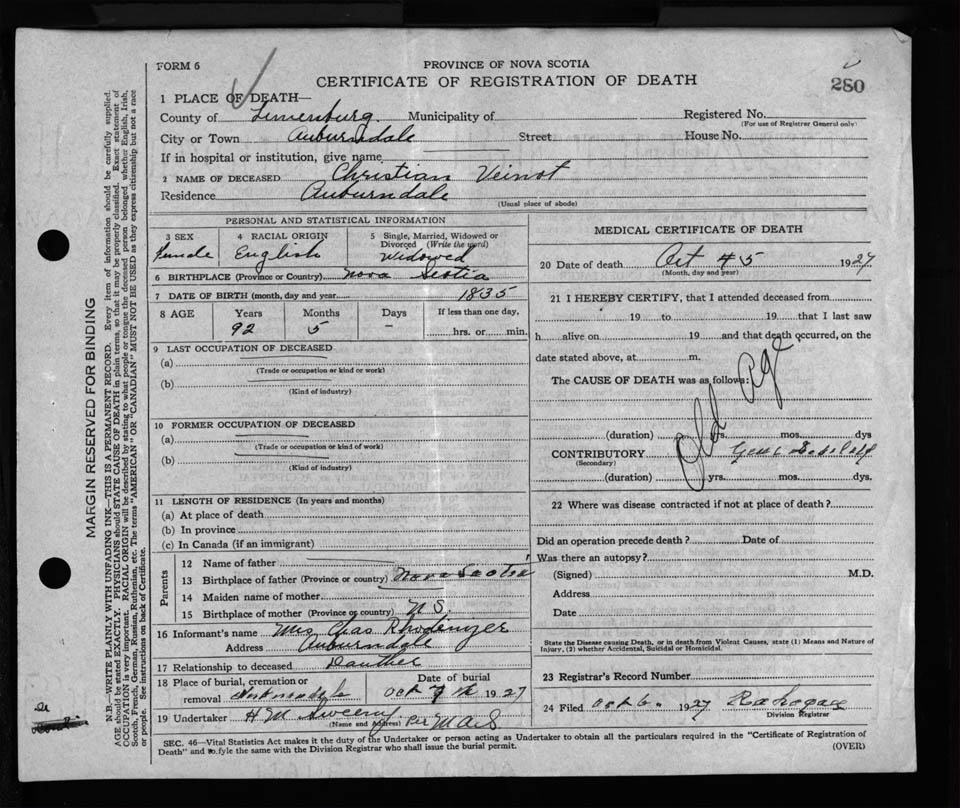 FORM 6
PROVINCE OF NOVA SCOTIA
CERTIFICATE OF REGISTRATION OF DEATH
280
1 PLACE OF DEATH—
County of Lunenburg Municipality of Registered No.
(For use of Registrar General only)
City or Town Auburndale Street House No.
If in hospital or institution, give name
2 NAME OF DECEASED Christian Veinot
Residence Auburndale
(Usual place of abode)
PERSONAL AND STATISTICAL INFORMATION
3 SEX 4 RACIAL ORIGIN 5 Single, Married, Widowed or Divorced (Write the word)
Female English Widowed
6 BIRTHPLACE (Province or Country) Nova Scotia
7 DATE OF BIRTH (month, day and year) 1835
8 AGE Years Months Days If less than one day,
92 5 – hrs. or min.
9 LAST OCCUPATION OF DECEASED
(a)
(Trade or occupation or kind or work)
(b)
(Kind of industry)
10 FORMER OCCUPATION OF DECEASED
(a)
(Trade or occupation or kind of work)
(b)
(Kind of industry)
11 LENGTH OF RESIDENCE (In years and months)
(a) At place of death
(b) In province
(c) In Canada (if an immigrant)
Parents
12 Name of father
13 Birthplace of father (Province or country) Nova Scotia
14 Maiden name of mother
15 Birthplace of mother (Province or country) N S.
16 Informant's name Mrs Chas Rhodenizer
Address Auburndale
17 Relationship to deceased Dauther
18 Place of burial, cremation or removal Auburndale Date of burial Oct 7 th 1927
19 Undertaker H M Sweeny Per M A S
(Name and Address)
MEDICAL CERTIFICATE OF DEATH
20 Date of death Oct 4 5 1927
(Month, day and year)
21 I HEREBY CERTIFY, that I attended deceased from
19 to 19 that I last saw
h alive on 19 and that death occurred, on the
date stated above, at m.
The CAUSE OF DEATH was as follows:
Old Age
(duration) yrs. mos. dys
CONTRIBUTORY
(Secondary)
(duration) yrs. mos. dys.
22 Where was disease contracted if not at place of death?
Did an operation precede death? Date of
Was there an autopsy?
(Signed) M.D.
Address
Date
State the Disease causing Death, or in death from Violent Causes, state (1) Means and Nature of
Injury, (2) whether Accidental, Suicidal or Homicidal.
23 Registrar's Record Number
24 Filed Oct 6 1927
Division Registrar
SEC. 46—Vital Statistics Act makes it the duty of the Undertaker or person acting as Undertaker to obtain all the particulars required in the "Certificate of Registration of
Death" and to fyle the same with the Division Registrar who shall issue the burial permit. (OVER)
MARGIN RESERVED FOR BINDING
N.B.—WRITE PLAINLY WITH UNFADING INK—THIS IS A PERMANENT RECORD. Every item of information should be carefully supplied.
AGE should be stated EXACTLY. PHYSICIANS should STATE CAUSE OF DEATH in plain terms, so that it may be properly classified. Exact statement of
OCCUPATION is very important. RACIAL ORIGIN will be described by stating to what people or tongue the deceased person belonged, whether English, Irish,
Scotch, French, German, Russian, Ruthenian, etc. The terms "AMERICAN" OR "CANADIAN" MUST NOT BE USED as they express citizenship but not a race
or people. See instructions on back of Certificate.